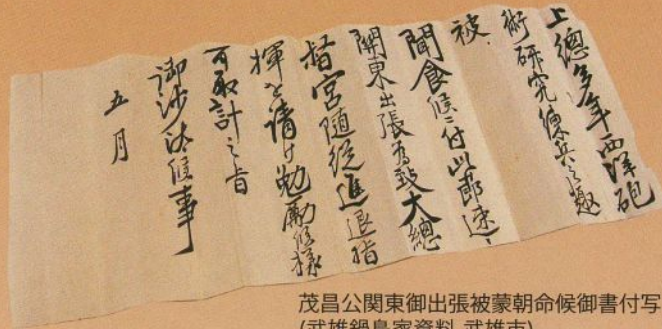 上總多年西洋砲
術研究練兵之趣
被
聞食候ニ付此節速ニ
關東出張爲致大總
督宮随從進退指
揮を請け勉勵候様
可取計之旨
御沙汰候事
五月
茂昌公関東御出張被蒙朝命候御書付写
(武雄鍋島家資料 武雄市)